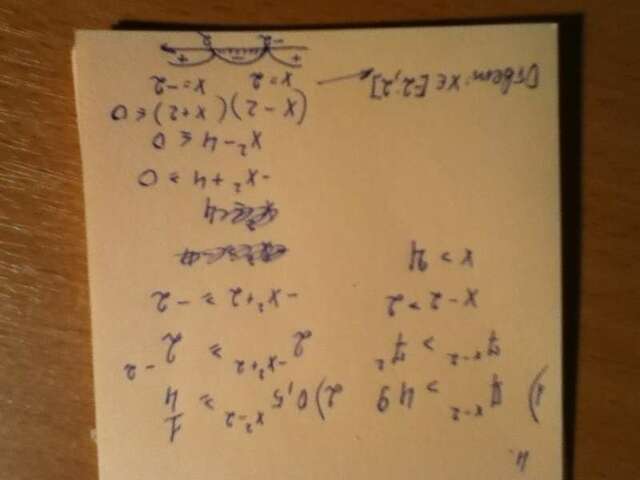 4.
1) 7^(x-2) > 49
7^(x-2) > 7^2
x-2 > 2
x > 4
2) 0,5^(x²-2) ≥ 1/4
2^(-x²+2) ≥ 2^(-2)
-x²+2 ≥ -2
-x²+4 ≥ 0
x²-4 ≤ 0
(x-2)(x+2) ≤ 0
x=2 x=-2
+ - +
-2 2
Ответ: x∈[-2;2]